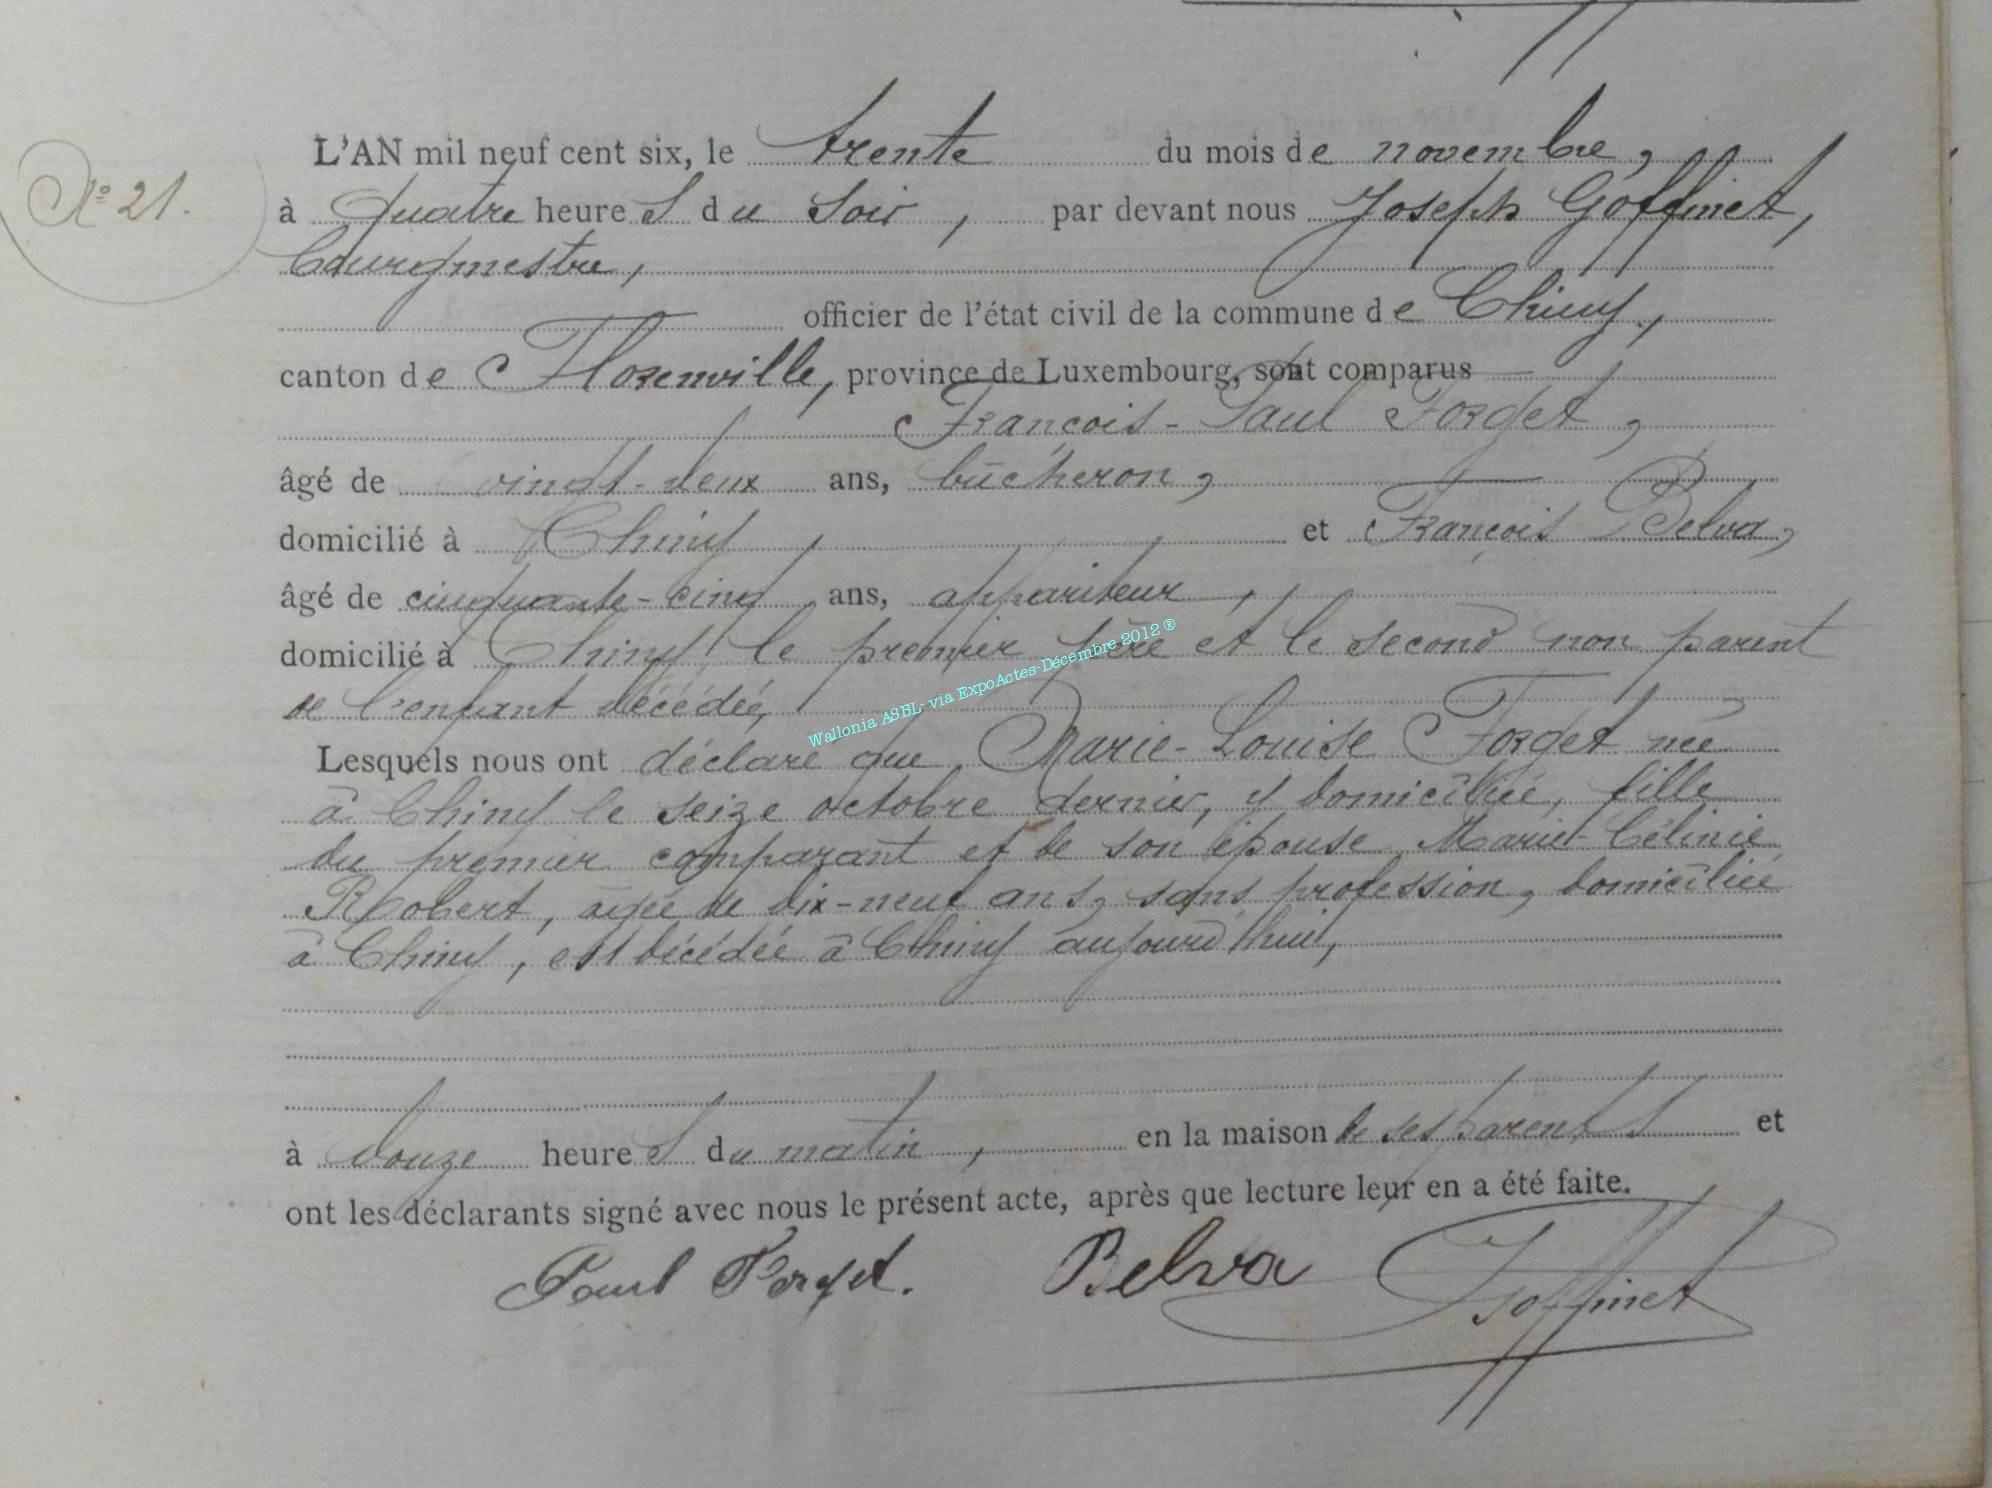 L'AN mil neuf cent six, le trente du mois de novembre,
N° 21.
à quatre heures du soir, par devant nous Joseph Goffinet,
bourgmestre,
officier de l'état civil de la commune de Chiny,
canton de Florenville, province de Luxembourg, sont comparus
François-Paul Forget,
âgé de vingt-deux ans, bûcheron,
domicilié à Chiny, et François Belva,
âgé de cinquante-cinq ans, appariteur,
domicilié à Chiny, le premier père et le second non parent
de l'enfant décédée,
Wallonia ASBL- via ExpoActes-Décembre 2012 ®
Lesquels nous ont déclaré que Marie-Louise Forget née
à Chiny le seize octobre dernier, y domiciliée, fille
du premier comparant et de son épouse Marie-Célinie
Robert, agée de dix-neuf ans, sans profession, domiciliée
à Chiny, est décédée à Chiny aujourd'hui,
à douze heures du matin, en la maison de ses parents et
ont les déclarants signé avec nous le présent acte, après que lecture leur en a été faite.
Paul Forget. Belva JGoffinet